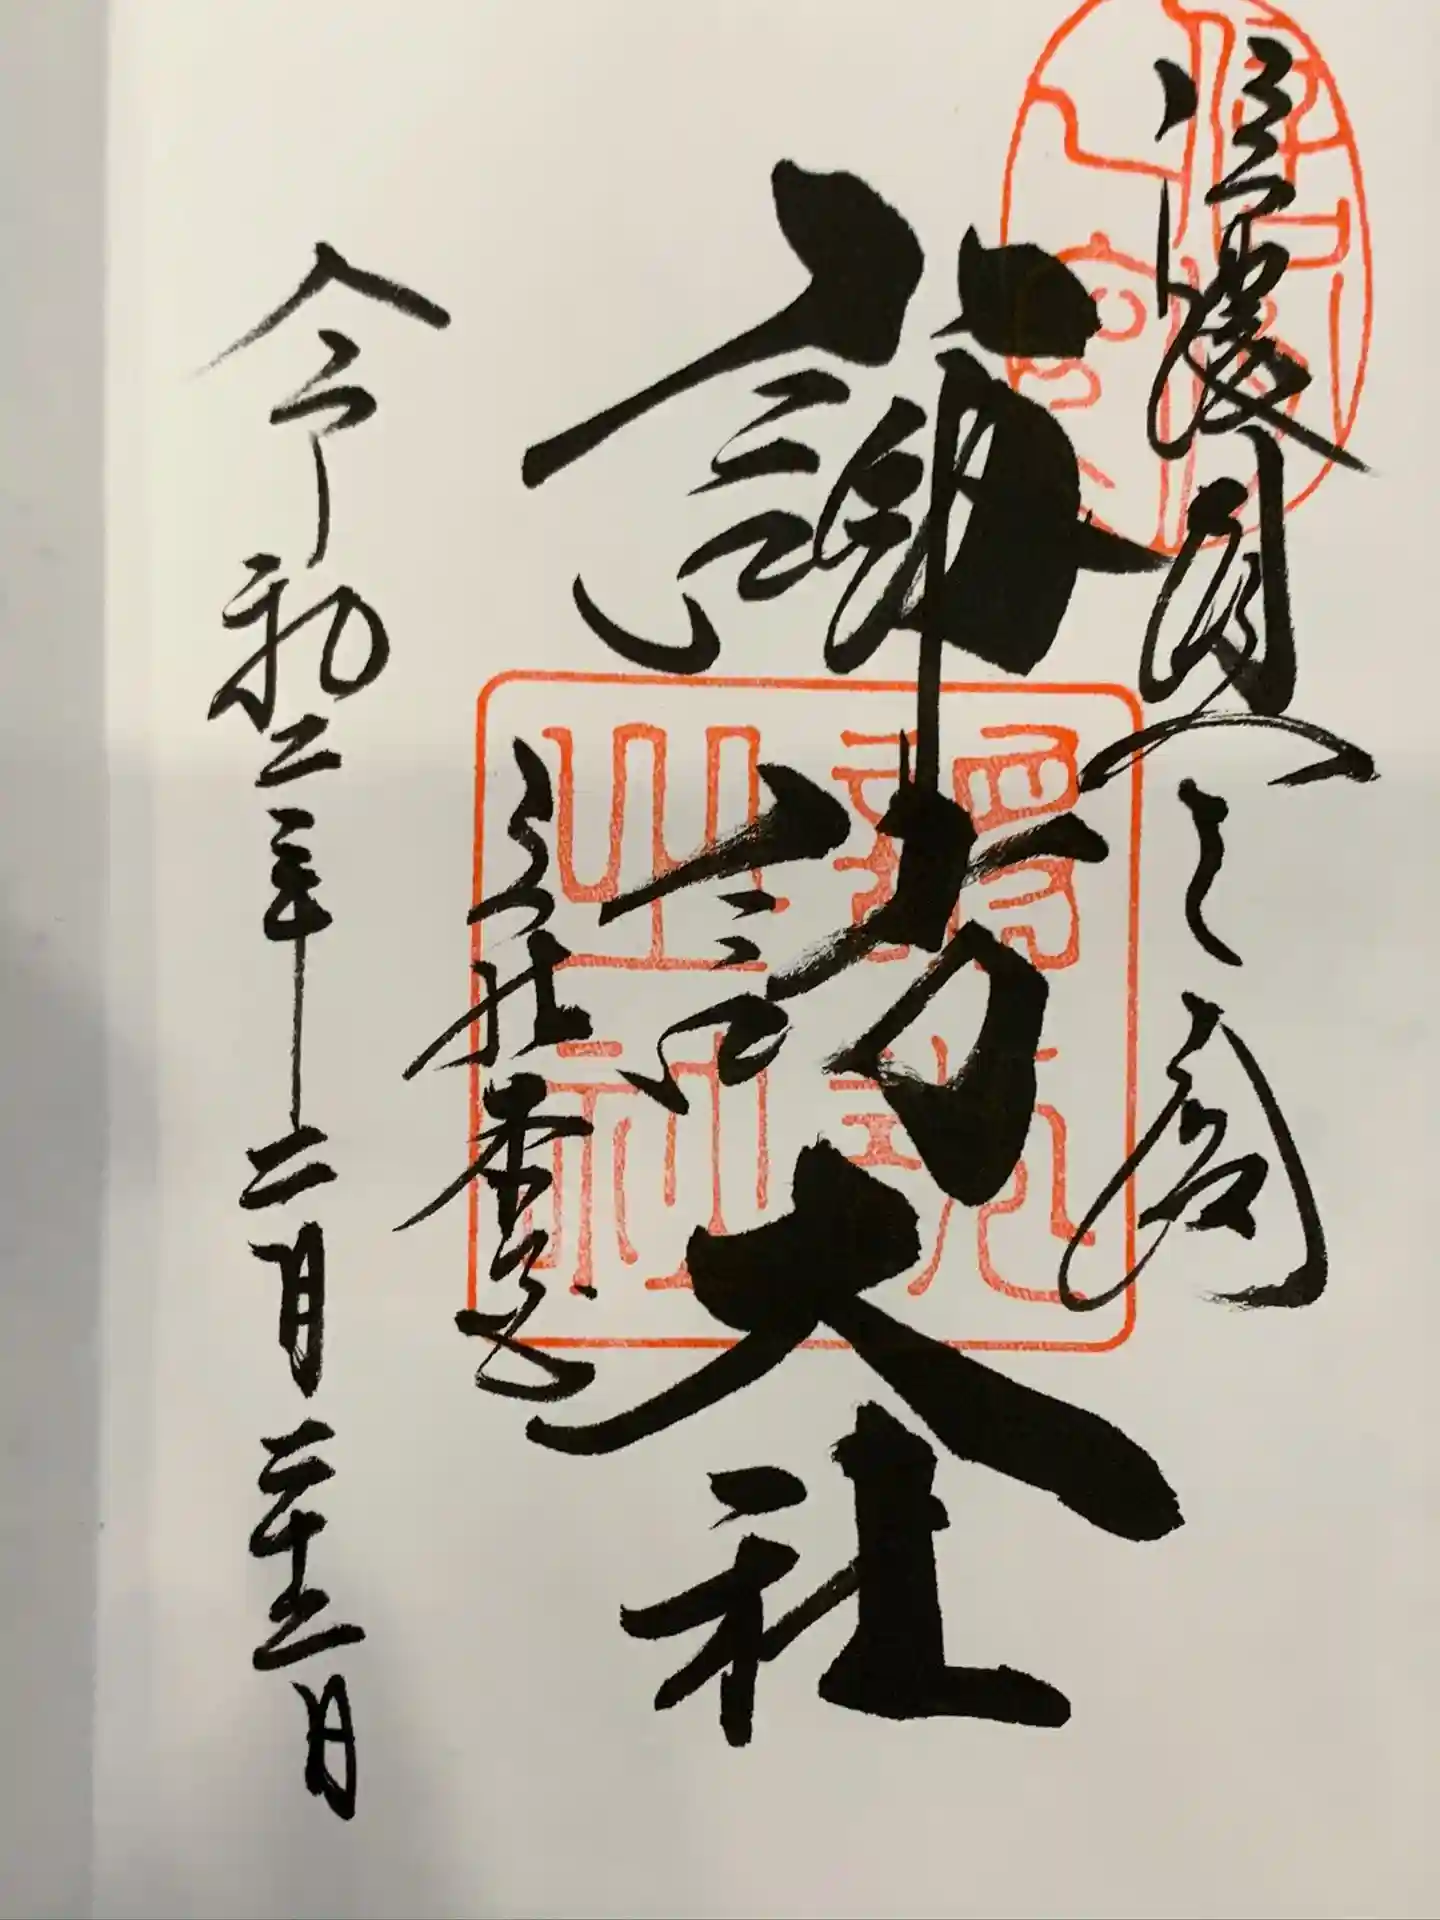 信濃國一之宮
諏訪大社
上社本宮
令和二年二月二十三日